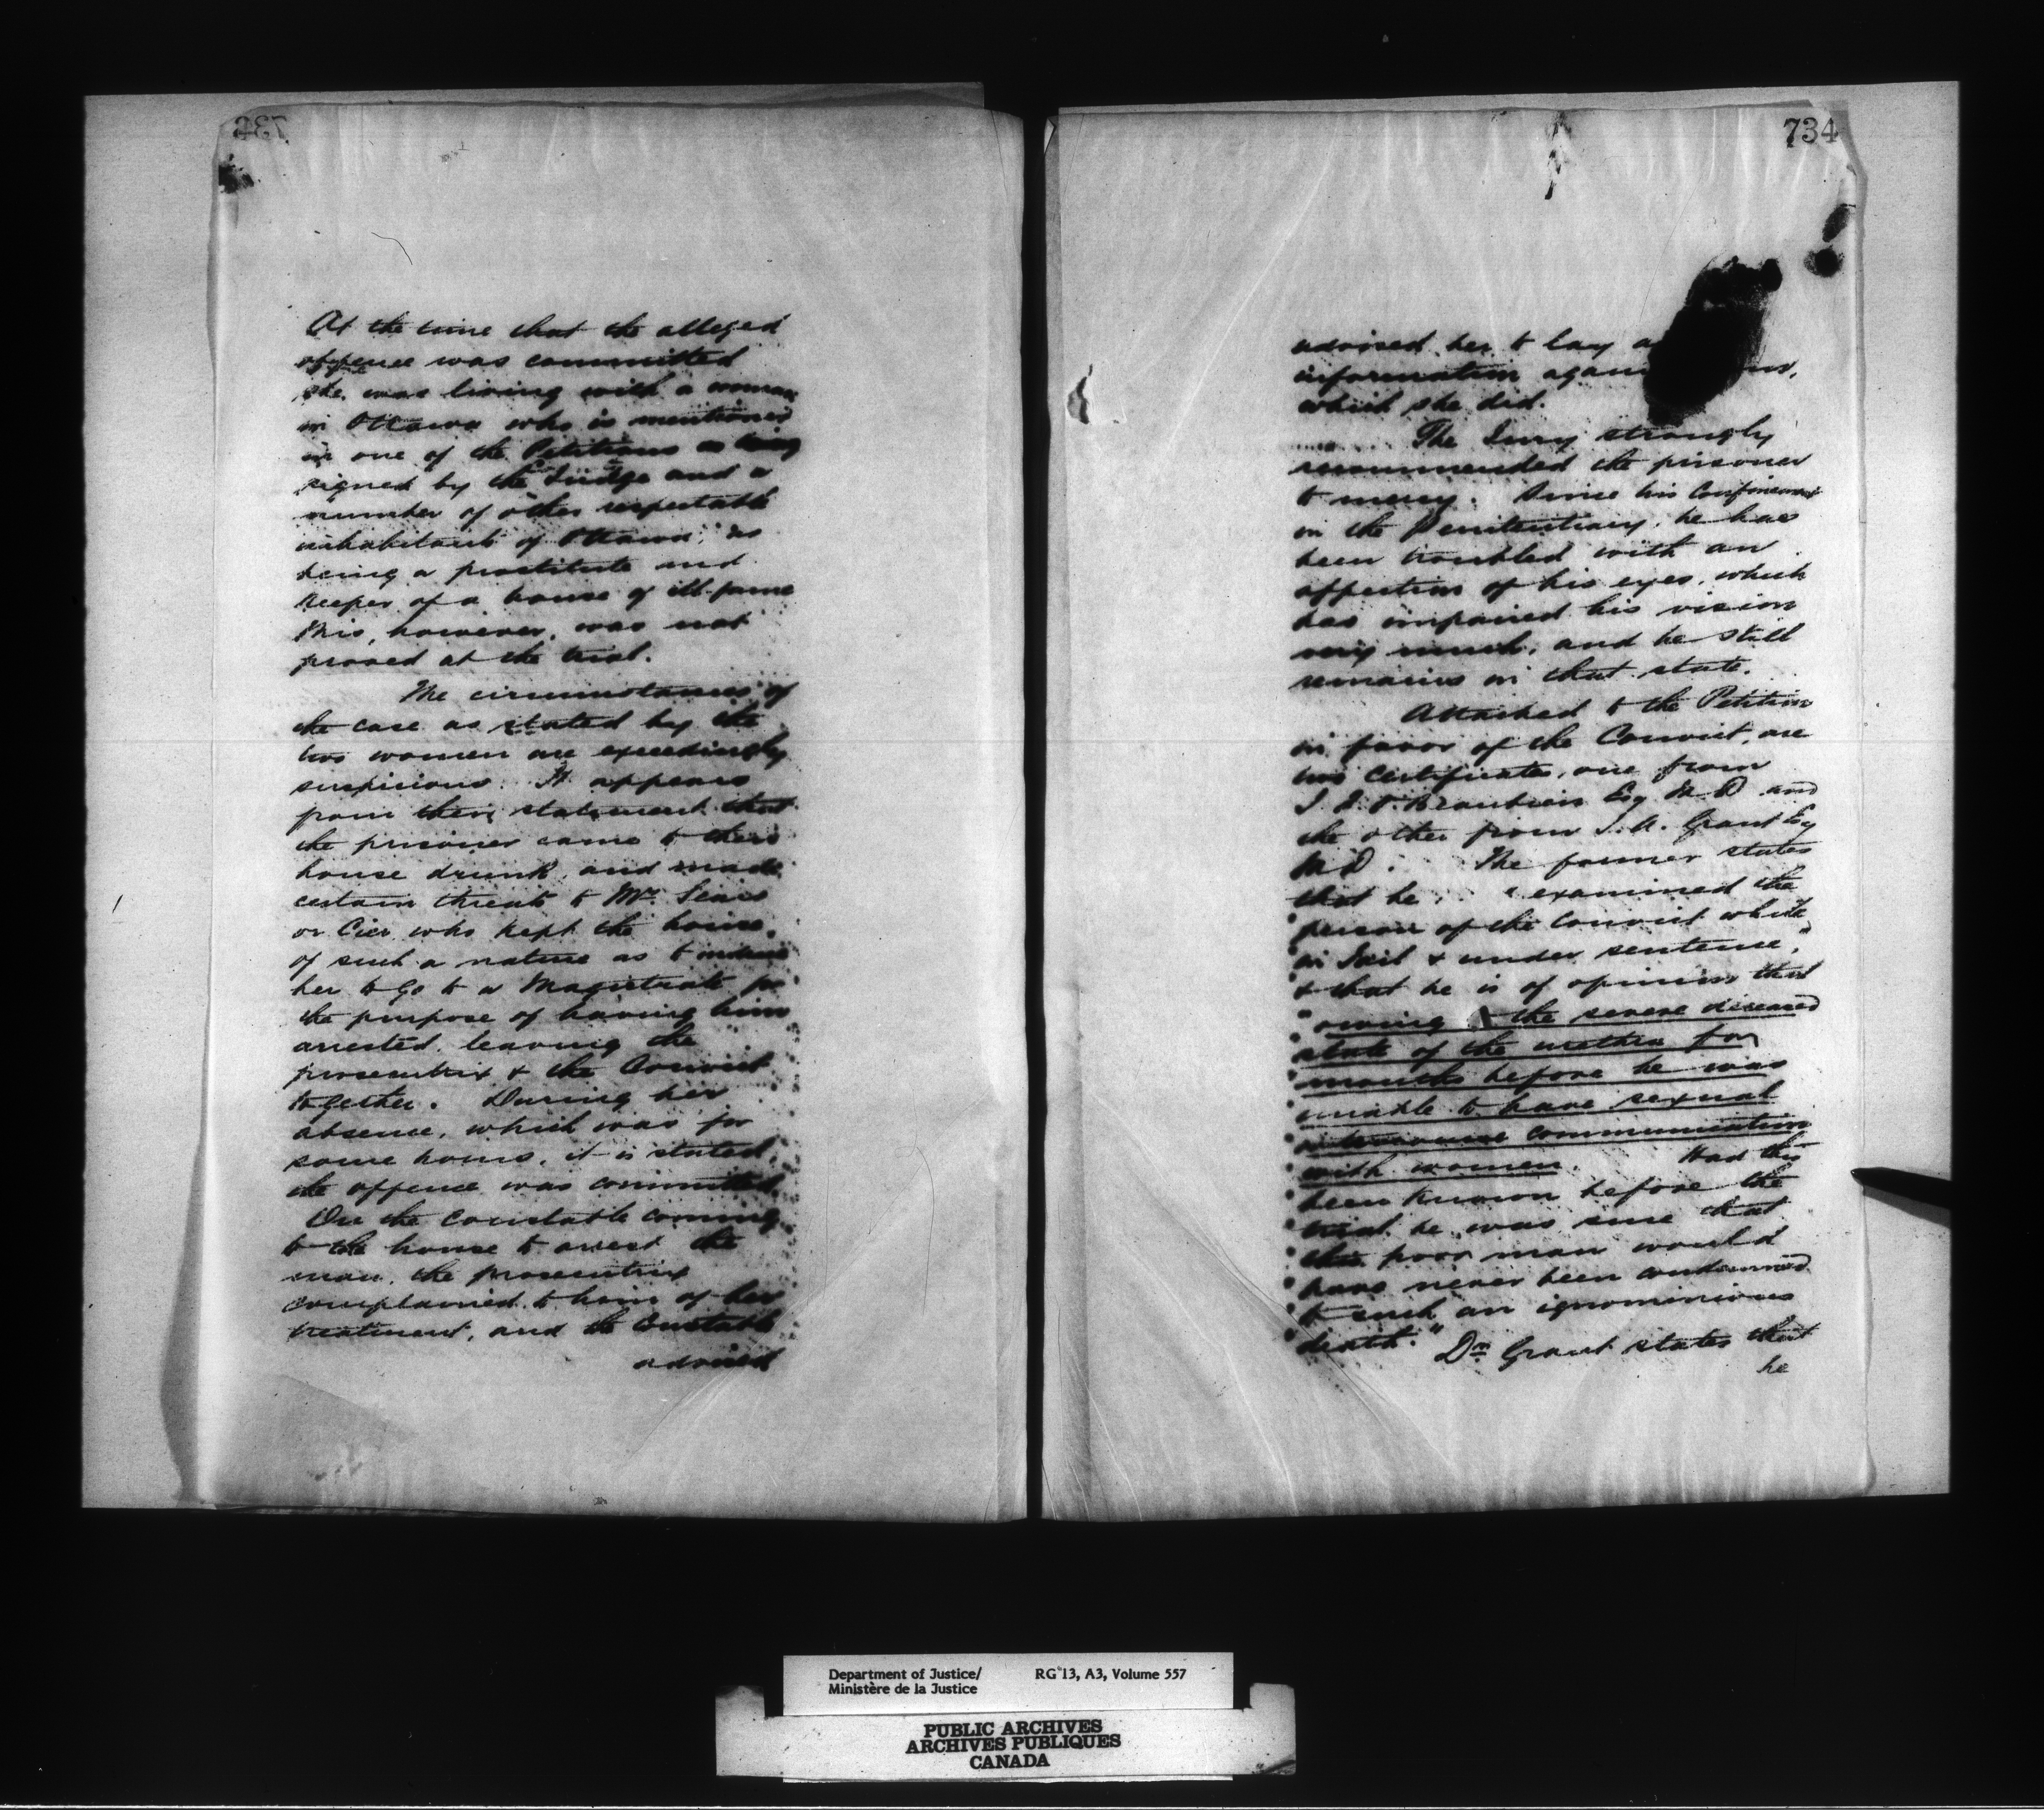 At the time that the alleged
offence was committed
she was living with a woman
in Ottawa who is mentioned
in one of the Petitions as being
signed by the Judge and a
number of other respectable
inhabitants of Ottawa, as
being a prostitute and
keeper of a house of ill-fame
This, however, was not
proved at the trial.
The circumstances of
the case as stated by the
two women are exceedingly
suspicious. It appears
from their statement that
the prisoner came to their
house drunk, and made
certain threats to Mrs
or Cier who kept the house,
of such a nature as to induce
her to go to a Magistrate for
the purpose of having him
arrested, leaving the
prosecutrix & the Convict
together. During her
absence, which was for
some hours, it is stated,
the offence was committed
On the Constable coming
to the house to arrest the
man, the prosecutrix
complained to him of her
treatment, and the Constable
advised
734
advised her to lay a
information
which she did.
The Jury strongly
recommended the prisoner
to mercy. Since his Confinement
in the Penitentiary, he has
been troubled with an
affection of his eyes, which
has impaired his vision
very much, and he still
remains in that state.
Attached to the Petition
in favor of the Convict, are
two Certificates, one from
Beaubien Esq M.D and
the other from J.A. Grant Esq
M.D. The former states
that he "examined the
person of the Convict while
in Jail & under sentence,"
& that he is of opinion that
"owing to the severe diseased
state of the urethra for
months before he was
unable to have sexual
intercourse communication
with women. Had this
been known before the
trial he was sure that
this poor man would
have never been condemned
to such an ignominious
death." Dr Grant states that
he
Department of Justice/ RG 13, A3, Volume 557
Ministère de la Justice
PUBLIC ARCHIVES
ARCHIVES PUBLIQUES
CANADA